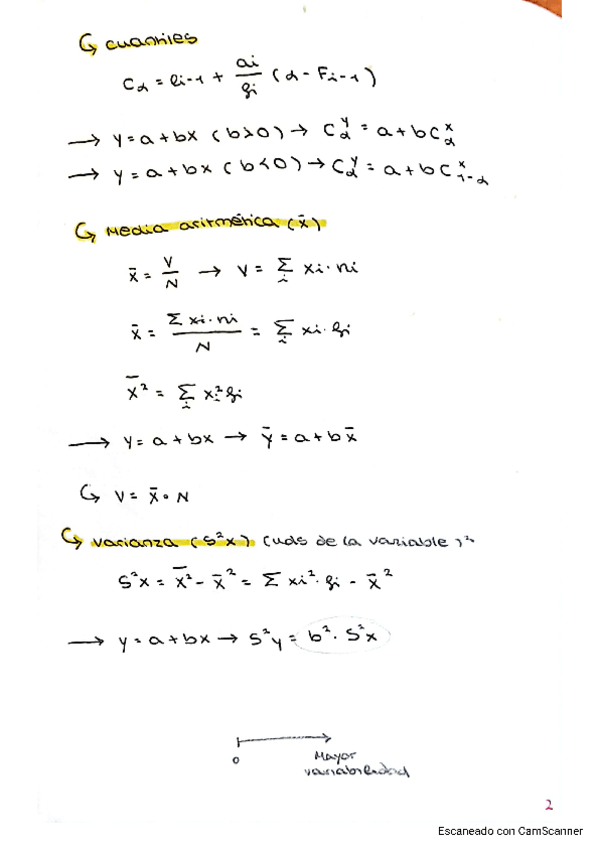 ↳ cuantiles
Cα = li-1 + ai/fi (α - Fi-1)
→ y = a + bx (b>0) → Cα^y = a + b Cα^x
→ y = a + bx (b<0) → Cα^y = a + b C1-α^x
↳ Media aritmética (x̄)
x̄ = V/N → V = Σi xi · ni
x̄ = Σ xi · ni / N = Σi xi · fi
x̄² = Σi xi² fi
→ y = a + bx → ȳ = a + b x̄
↳ V = x̄ · N
↳ varianza (S²x) (uds de la variable)²
S²x = x̄² - x̄² = Σ xi² · fi - x̄²
→ y = a + bx → S²y = b² · S²x
0
Mayor
variabilidad
2
Escaneado con CamScanner